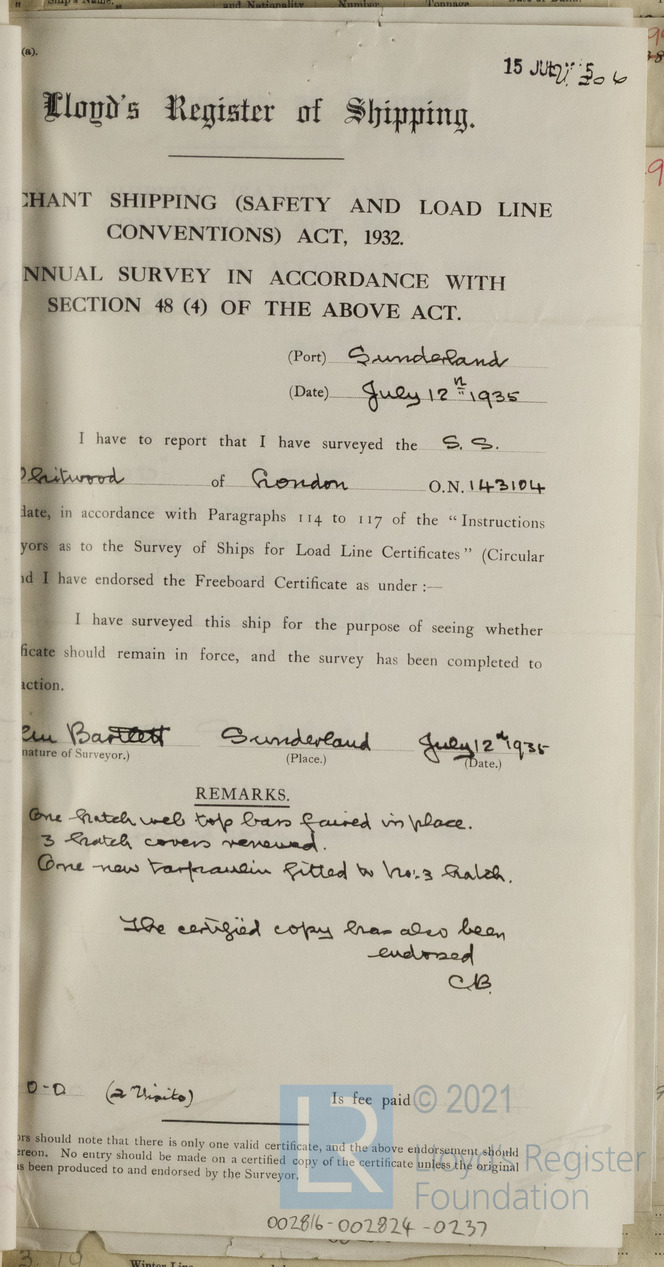 Ship's Name. and Nationality Number. Tonnage
(a).
15 JUL
Lloyd's Register of Shipping.
CHANT SHIPPING (SAFETY AND LOAD LINE
CONVENTIONS) ACT, 1932.
NNUAL SURVEY IN ACCORDANCE WITH
SECTION 48 (4) OF THE ABOVE ACT.
(Port) Sunderland
(Date) July 12th 1935
I have to report that I have surveyed the S.S.
Whitwood of London O.N. 143104
date, in accordance with Paragraphs 114 to 117 of the "Instructions
yors as to the Survey of Ships for Load Line Certificates" (Circular
nd I have endorsed the Freeboard Certificate as under :—
I have surveyed this ship for the purpose of seeing whether
ficate should remain in force, and the survey has been completed to
action.
Bartlett Sunderland July 12th 1935
nature of Surveyor.) (Place.) (Date.)
REMARKS.
One hatch web top bars faired in place.
3 hatch covers renewed.
One new tarpaulin fitted to No. 3 hatch.
The certified copy has also been
endorsed
C.B.
0-0 (2 Visits) Is fee paid
© 2021
ors should note that there is only one valid certificate, and the above endorsement should
ereon. No entry should be made on a certified copy of the certificate unless the original
s been produced to and endorsed by the Surveyor.
LR
Lloyd's Register
Foundation
002816-002824-0237
Winter Line